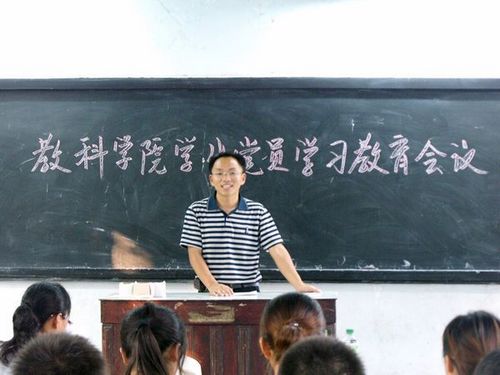 教科学院学生党员学习教育会议